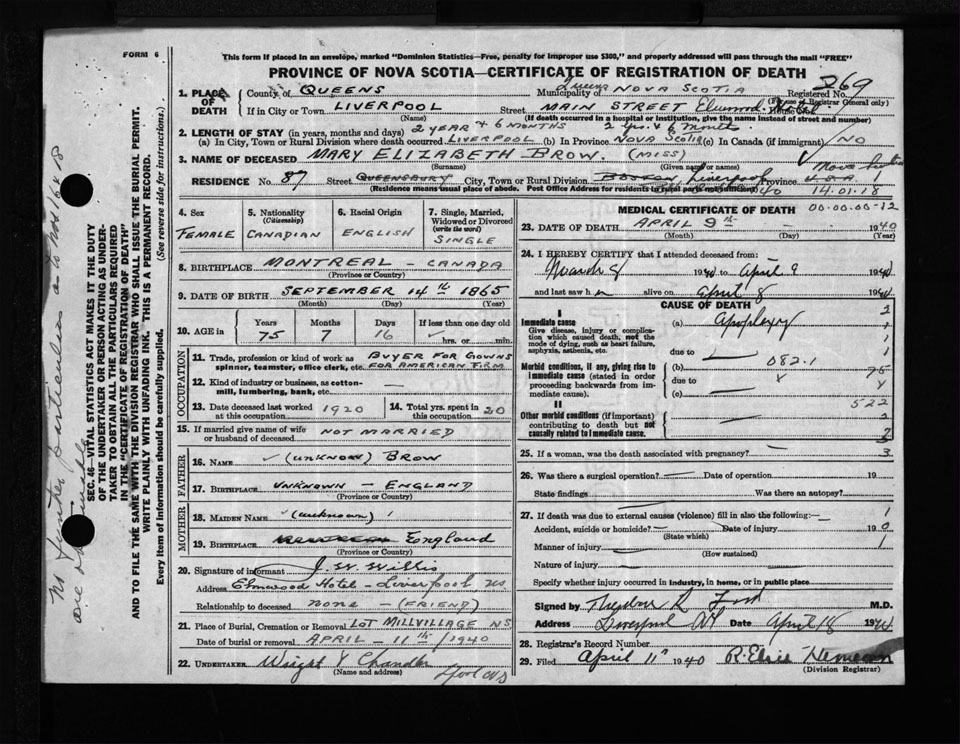 FORM 6
This form if placed in an envelope, marked "Dominion Statistics—Free, penalty for improper use $300," and properly addressed will pass through the mail "FREE"
PROVINCE OF NOVA SCOTIA—CERTIFICATE OF REGISTRATION OF DEATH
269
1. PLACE OF DEATH
County of QUEENS Municipality of Queens NOVA SCOTIA Registered No.
(For use of Registrar General only)
If in City or Town LIVERPOOL Street MAIN STREET Elmwood Hotel
(Name) (If death occurred in a hospital or institution, give the name instead of street and number)
2. LENGTH OF STAY (in years, months and days) 2 YEAR & 6 MONTHS 2 Yrs. & 6 Months
(a) In City, Town or Rural Division where death occurred LIVERPOOL (b) In Province NOVA SCOTIA (c) In Canada (if immigrant) NO
3. NAME OF DECEASED MARY ELIZABETH BROW. (MISS)
(Surname) (Given name or names)
RESIDENCE No. 87 Street QUEENSBURY City, Town or Rural Division BOSTON Liverpool Province Nova Scotia U.S.A. 1
(Residence means usual place of abode. Post Office Address for residents in rural parts not sufficient)
14.01.18
00.00.00-12
4. Sex FEMALE
5. Nationality (Citizenship) CANADIAN
6. Racial Origin ENGLISH
7. Single, Married, Widowed or Divorced (write the word) SINGLE
8. BIRTHPLACE MONTREAL - CANADA
(Province or Country)
9. DATE OF BIRTH SEPTEMBER 14th 1865
(Month) (Day) (Year)
10. AGE in Years 75 Months 7 Days 16 If less than one day old hrs. or min.
OCCUPATION
11. Trade, profession or kind of work as spinner, teamster, office clerk, etc. BUYER FOR GOWNS FOR AMERICAN FIRM
12. Kind of industry or business, as cotton-mill, lumbering, bank, etc. —
13. Date deceased last worked at this occupation 1920 14. Total yrs. spent in this occupation 20
15. If married give name of wife or husband of deceased NOT MARRIED
FATHER
16. NAME (UNKNOWN) BROW
17. BIRTHPLACE UNKNOWN - ENGLAND
(Province or Country)
MOTHER
18. MAIDEN NAME (unknown)
19. BIRTHPLACE England
(Province or Country)
20. Signature of informant J. W. Willis
Address Elmwood Hotel - Liverpool NS
Relationship to deceased NONE - (FRIEND)
21. Place of Burial, Cremation or Removal LOT MILLVILLAGE NS
Date of burial or removal APRIL - 11th / 1940
22. UNDERTAKER Wright Y Chandler
(Name and address)
MEDICAL CERTIFICATE OF DEATH
23. DATE OF DEATH APRIL 9th - 1940
(Month) (Day) (Year)
24. I HEREBY CERTIFY that I attended deceased from:
March 8 1940 to April 9 1940
and last saw h alive on April 8 1940
CAUSE OF DEATH
I
Immediate cause (a) Apoplexy
Give disease, injury or complication which caused death, not the mode of dying, such as heart failure, asphyxia, asthenia, etc.
due to
Morbid conditions, if any, giving rise to immediate cause (stated in order proceeding backwards from immediate cause). (b) 082.1
due to
(c)
522
II
Other morbid conditions (if important) contributing to death but not causally related to immediate cause.
25. If a woman, was the death associated with pregnancy?
26. Was there a surgical operation? Date of operation 19
State findings Was there an autopsy?
27. If death was due to external causes (violence) fill in also the following:—
Accident, suicide or homicide? Date of injury 19
(State which)
Manner of injury
(How sustained)
Nature of injury
Specify whether injury occurred in industry, in home, or in public place
Signed by M.D.
Address Liverpool NS Date April 18 1940
28. Registrar's Record Number
29. Filed April 11" 1940 R. Elsie
(Division Registrar)
SEC. 46—VITAL STATISTICS ACT MAKES IT THE DUTY
OF THE UNDERTAKER OR PERSON ACTING AS UNDER-
TAKER TO OBTAIN ALL THE PARTICULARS REQUIRED
IN THE "CERTIFICATE OF REGISTRATION OF DEATH"
AND TO FILE THE SAME WITH THE DIVISION REGISTRAR WHO SHALL ISSUE THE BURIAL PERMIT.
WRITE PLAINLY WITH UNFADING INK. THIS IS A PERMANENT RECORD.
Every item of information should be carefully supplied. (See reverse side for instructions.)
No further particulars as to Nos 16 & 18
are obtainable